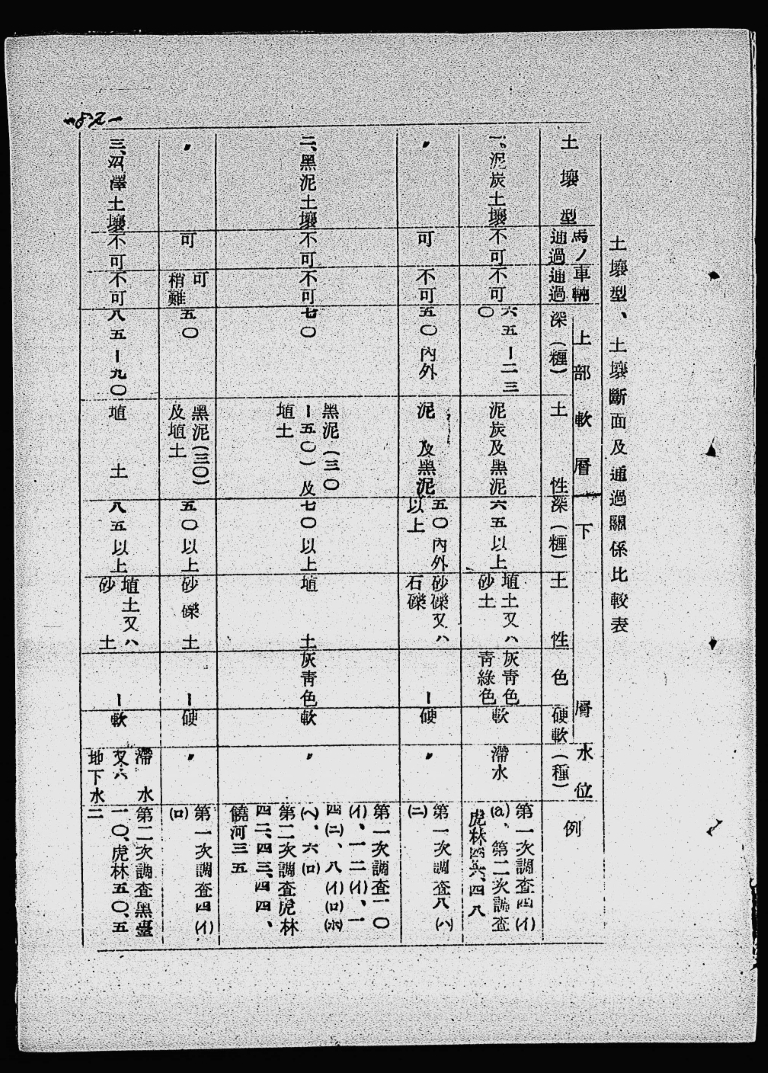 土壤型、土壤斷面及通過關係比較表
土壤型
馬ノ通過
車輛通過
上部軟層
深(糎)
土性
下層
深(糎)
土性
色
硬軟
水位(種)
例
一、泥炭土壤
不可
不可
六五ー二三〇
泥炭及黑泥
六五以上
埴土又ハ砂土
灰靑色靑綠色
軟
滯水
第一次調査四(イ)(a)、第二次調査虎林四六、四八
〃
可
不可
五〇內外
泥及黑泥
五〇內外以上
砂礫又ハ石礫
ー
硬
〃
第一次調査八(ハ)(ニ)
二、黑泥土壤
不可
不可
七〇
黑泥(三〇ー五〇)及埴土
七〇以上
埴土
灰靑色
軟
〃
第一次調査一〇(イ)、一二(イ)、一四(ニ)、八(イ)(ロ)(ホ)(ヘ)、六(ロ)
第二次調査虎林四二、四三、四四、饒河三五
〃
可
可稍難
五〇
黑泥(三〇)及埴土
五〇以上
砂礫土
ー
硬
〃
第一次調査四(イ)(ロ)
三、沼澤土壤
不可
不可
八五ー九〇
埴土
八五以上
埴土又ハ砂土
ー
軟
滯水又ハ地下水
第二次調査黑臺一〇、虎林五〇、五三
-82-